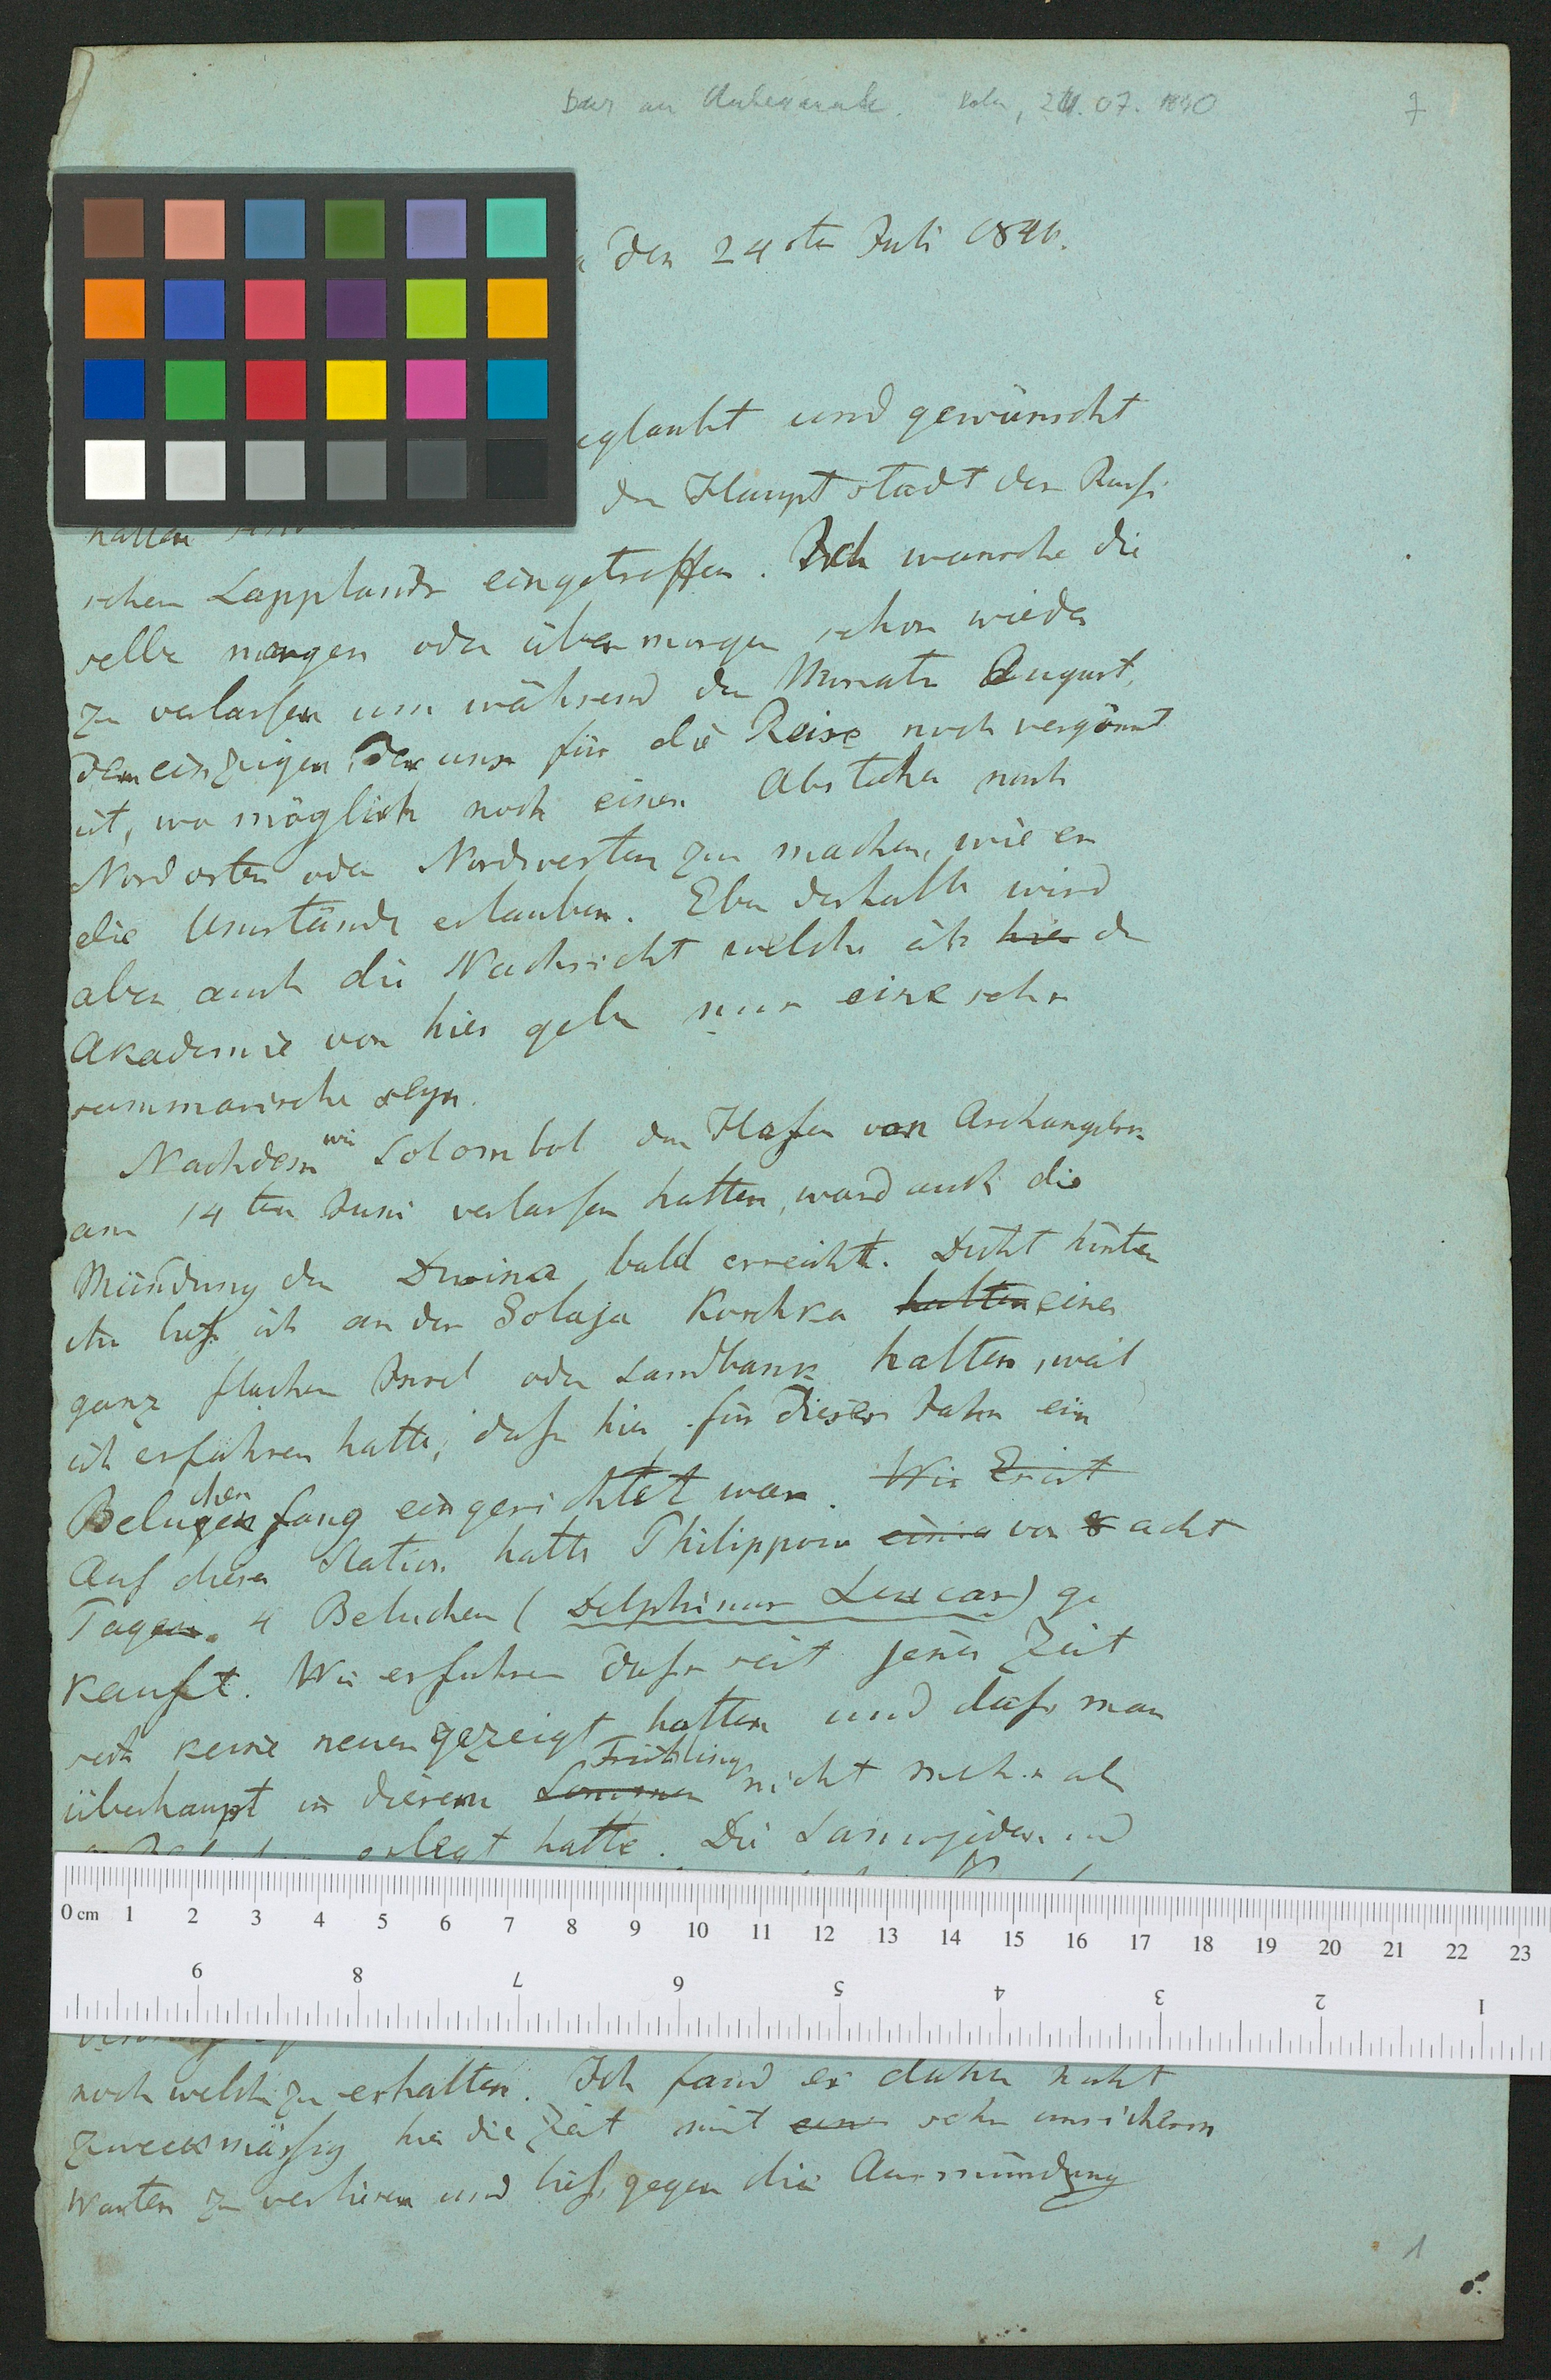 Baer an Unbekannte. Kola, 24.07.1840
7
den 24sten Juli 1840.
geglaubt und gewünscht
hatten der Hauptstadt des Russi
schen Lapplands eingetroffen. Ich wünsche die
selbe morgen oder übermorgen schon wieder
zu verlassen um während des Monats August,
dem einzigen, der uns für die Reise noch vergönnt
ist, wo möglich noch einen Abstecher nach
Nordosten oder Nordwesten zu machen, wie es
die Umstände erlauben. Eben deshalb wird
aber auch die Nachricht welche ich hier der
Akademie von hier gebe nur eine sehr
summarische seyn.
Nachdem wir Solombol den Hafen von Archangelsk
am 14ten Juni verlassen hatten, ward auch die
Mündung der Dwina bald erreicht. Dicht hinter
ihr ließ ich an der Golaja Koschka halten einer
ganz flachen Insel oder Sandbank halten, weil
ich erfahren hatte, daß hier für dieses Jahr ein
Beluchenfang eingerichtet war. Wir Erist
Auf dieser Station hatte Philippow einia vor 8 acht
Tagen 4 Beluchen (Delphinus Leucas) ge
kauft. Wir erfuhren daß seit jener Zeit
sich keine neuen gezeigt hatten und daß man
überhaupt in diesem Sommer Frühling nicht mehr als
erlegt hatte. Die Samojeden und
noch welche zu erhalten. Ich fand es daher nicht
zweckmäßig hier die Zeit mit einem sehr unsicherm
Warten zu verlieren und ließ gegen die Ausmündung
1
0 cm 1 2 3 4 5 6 7 8 9 10 11 12 13 14 15 16 17 18 19 20 21 22 23
9 8 7 6 5 4 3 2 1